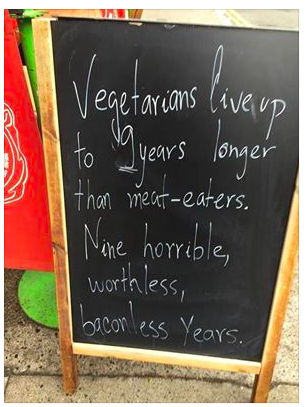 Vegetarians live up
to 9 years longer
than meat-eaters.
Nine horrible,
worthless,
baconless years.